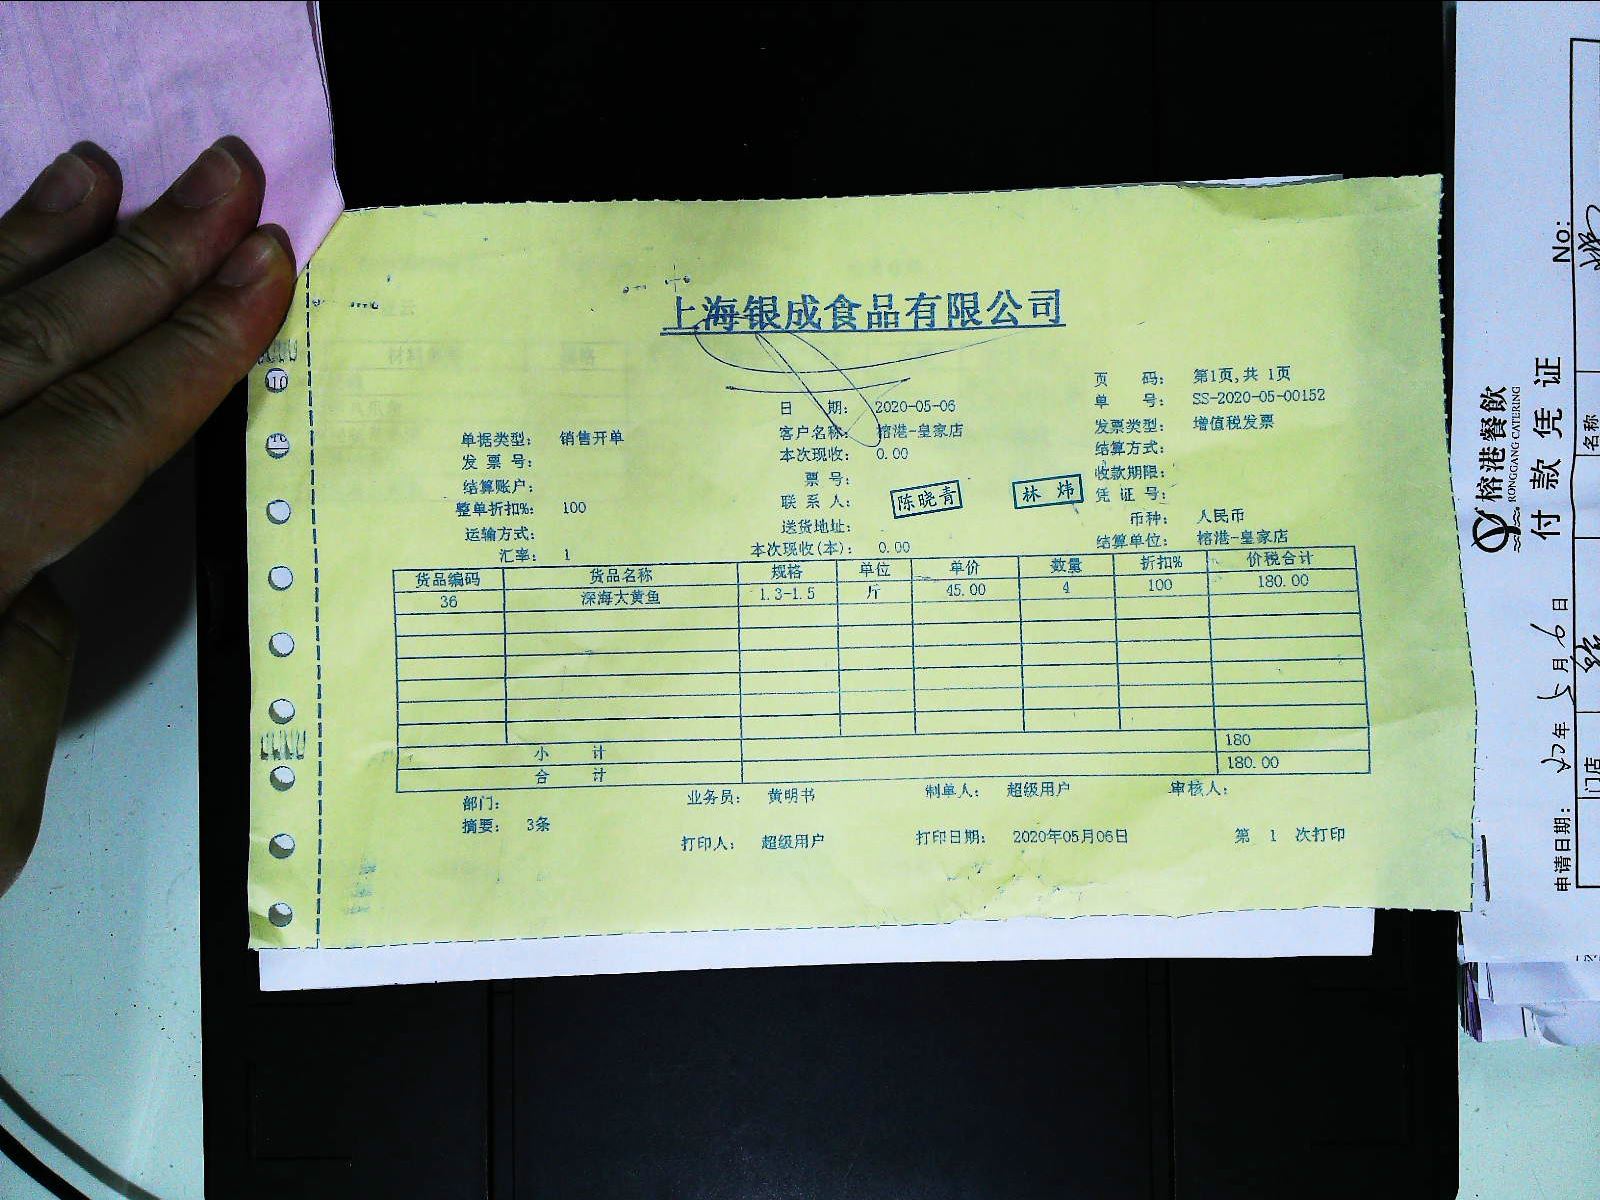 上海银成食品有限公司
页 码： 第1页,共 1页
日 期： 2020-05-06 单 号： SS-2020-05-00152
单据类型： 销售开单 客户名称： 榕港-皇家店 发票类型： 增值税发票
发 票 号： 本次现收： 0.00 结算方式：
结算账户： 票号： 收款期限：
整单折扣%： 100 联 系 人： 陈晓青 林炜 凭 证 号：
运输方式： 送货地址： 币种： 人民币
汇率： 1 本次现收(本)： 0.00 结算单位： 榕港-皇家店
货品编码 货品名称 规格 单位 单价 数量 折扣% 价税合计
36 深海大黄鱼 1.3-1.5 斤 45.00 4 100 180.00
小 计 180
合 计 180.00
部门： 业务员： 黄明书 制单人： 超级用户 审核人：
摘要： 3条
打印人： 超级用户 打印日期： 2020年05月06日 第 1 次打印
榕港餐飲
RONGGANG CATERING
付款凭证
No:
申请日期： 年5月9日
门店
名称